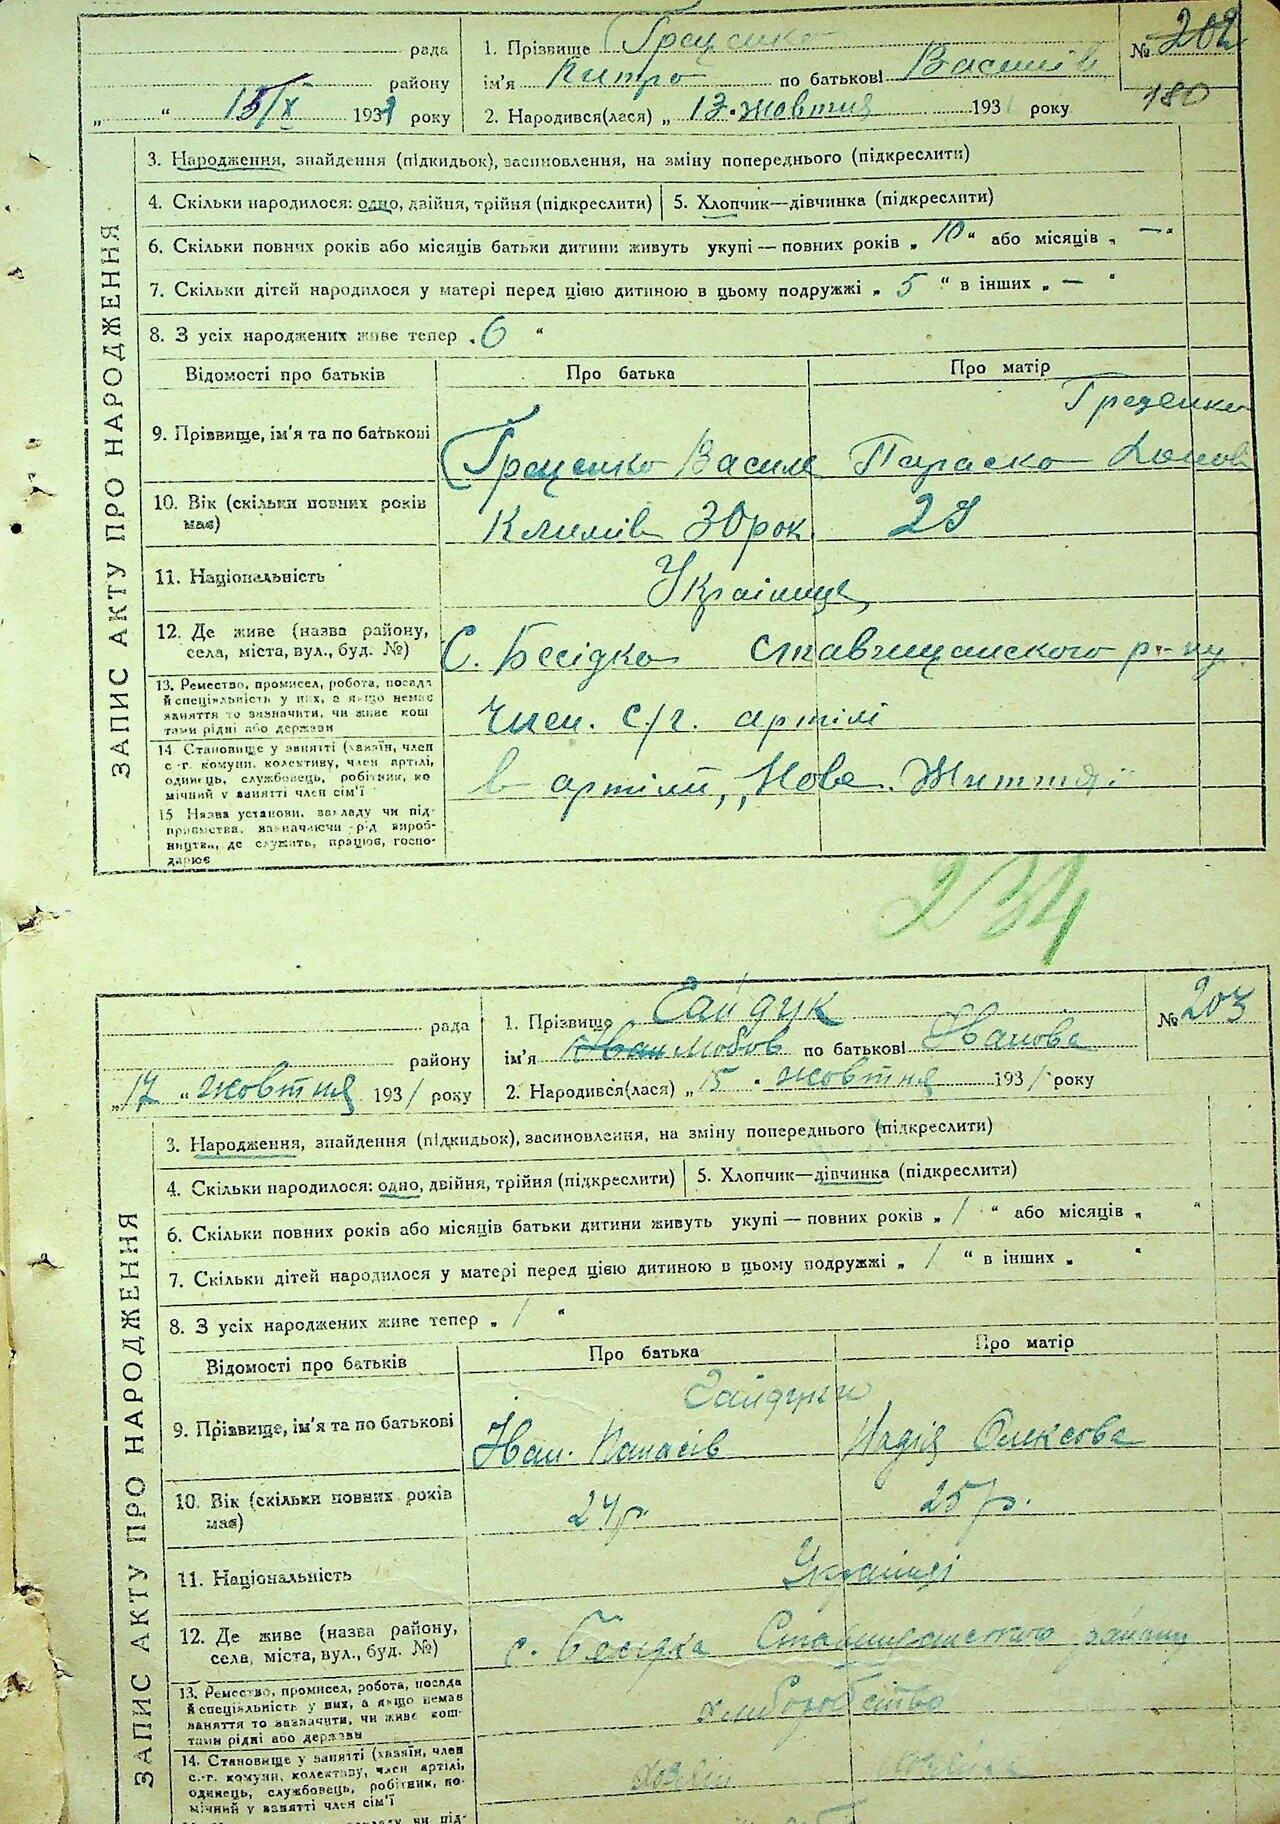 рада
району
„ “ 15/X 1931 року
1. Прізвище Гриценко
ім'я по батькові Василів
2. Народився(лася) „ 13 · жовтня 1931 року
№ 202
180
ЗАПИС АКТУ ПРО НАРОДЖЕННЯ
3. Народження, знайдення (підкидьок), засиновлення, на зміну попереднього (підкреслити)
4. Скільки народилося: одно, двійня, трійня (підкреслити) 5. Хлопчик—дівчинка (підкреслити)
6. Скільки повних років або місяців батьки дитини живуть укупі — повних років „ 10 “ або місяців „ — “
7. Скільки дітей народилося у матері перед цією дитиною в цьому подружжі „ 5 “ в інших „ — “
8. З усіх народжених живе тепер „ 6 “
Відомості про батьків Про батька Про матір
9. Прізвище, ім'я та по батькові
Гриценко Василь
Параска
10. Вік (скільки повних років має)
Климів 30 рок. 29
11. Національність
Українці
12. Де живе (назва району, села, міста, вул., буд. №)
С. Бесідка Ставищанского р-ну
13. Ремество, промисел, робота, посада й спеціяльність у них, а якщо немає заняття то зазначити, чи живе коштами рідні або держави
Член. с/г. артілі
14 Становище у занятті (хазяїн, член с.-г. комуни, колективу, член артілі, одинець, службовець, робітник, помічний у занятті член сім'ї
в артілі „Нове Життя“
15 Назва установи, закладу чи підприємства, зазначаючи рід виробництва, де служить, працює, господарює
234
рада
району
„17 “ жовтня 1931 року
1. Прізвище Гайдук
ім'я Іван Любов по батькові Іванова
2. Народився(лася) „ 15 · жовтня 1931 року
№ 203
ЗАПИС АКТУ ПРО НАРОДЖЕННЯ
3. Народження, знайдення (підкидьок), засиновлення, на зміну попереднього (підкреслити)
4. Скільки народилося: одно, двійня, трійня (підкреслити) 5. Хлопчик—дівчинка (підкреслити)
6. Скільки повних років або місяців батьки дитини живуть укупі — повних років „ 1 “ або місяців „ “
7. Скільки дітей народилося у матері перед цією дитиною в цьому подружжі „ 1 “ в інших „ “
8. З усіх народжених живе тепер „ 1 “
Відомості про батьків Про батька Про матір
Гайдуки
9. Прізвище, ім'я та по батькові
Іван. Панасів Надія Олексова
10. Вік (скільки повних років має)
24 р. 25 р.
11. Національність
Українці
12. Де живе (назва району, села, міста, вул., буд. №)
с. Бесідка Ставищанського району
13. Ремество, промисел, робота, посада й спеціяльність у них, а якщо немає заняття то зазначити, чи живе коштами рідні або держави
хліборобство
14. Становище у занятті (хазяїн, член с.-г. комуни, колективу, член артілі, одинець, службовець, робітник, помічний у занятті член сім'ї
хазяїн хазяйка